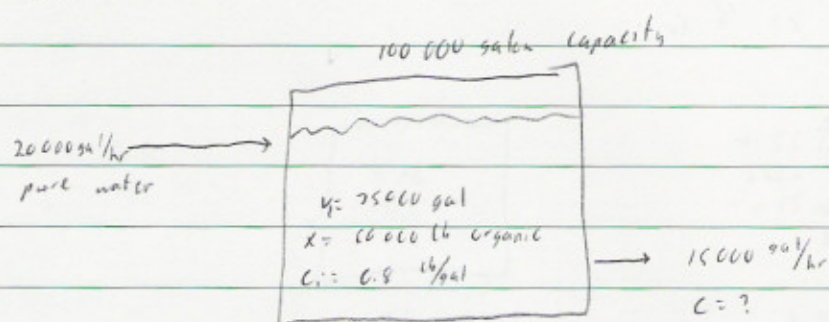 100 000 gallon capacity
20000 gal/hr
pure water
V= 75000 gal
x= 60 000 lb organic
Ci = 0.8 lb/gal
15000 gal/hr
C = ?